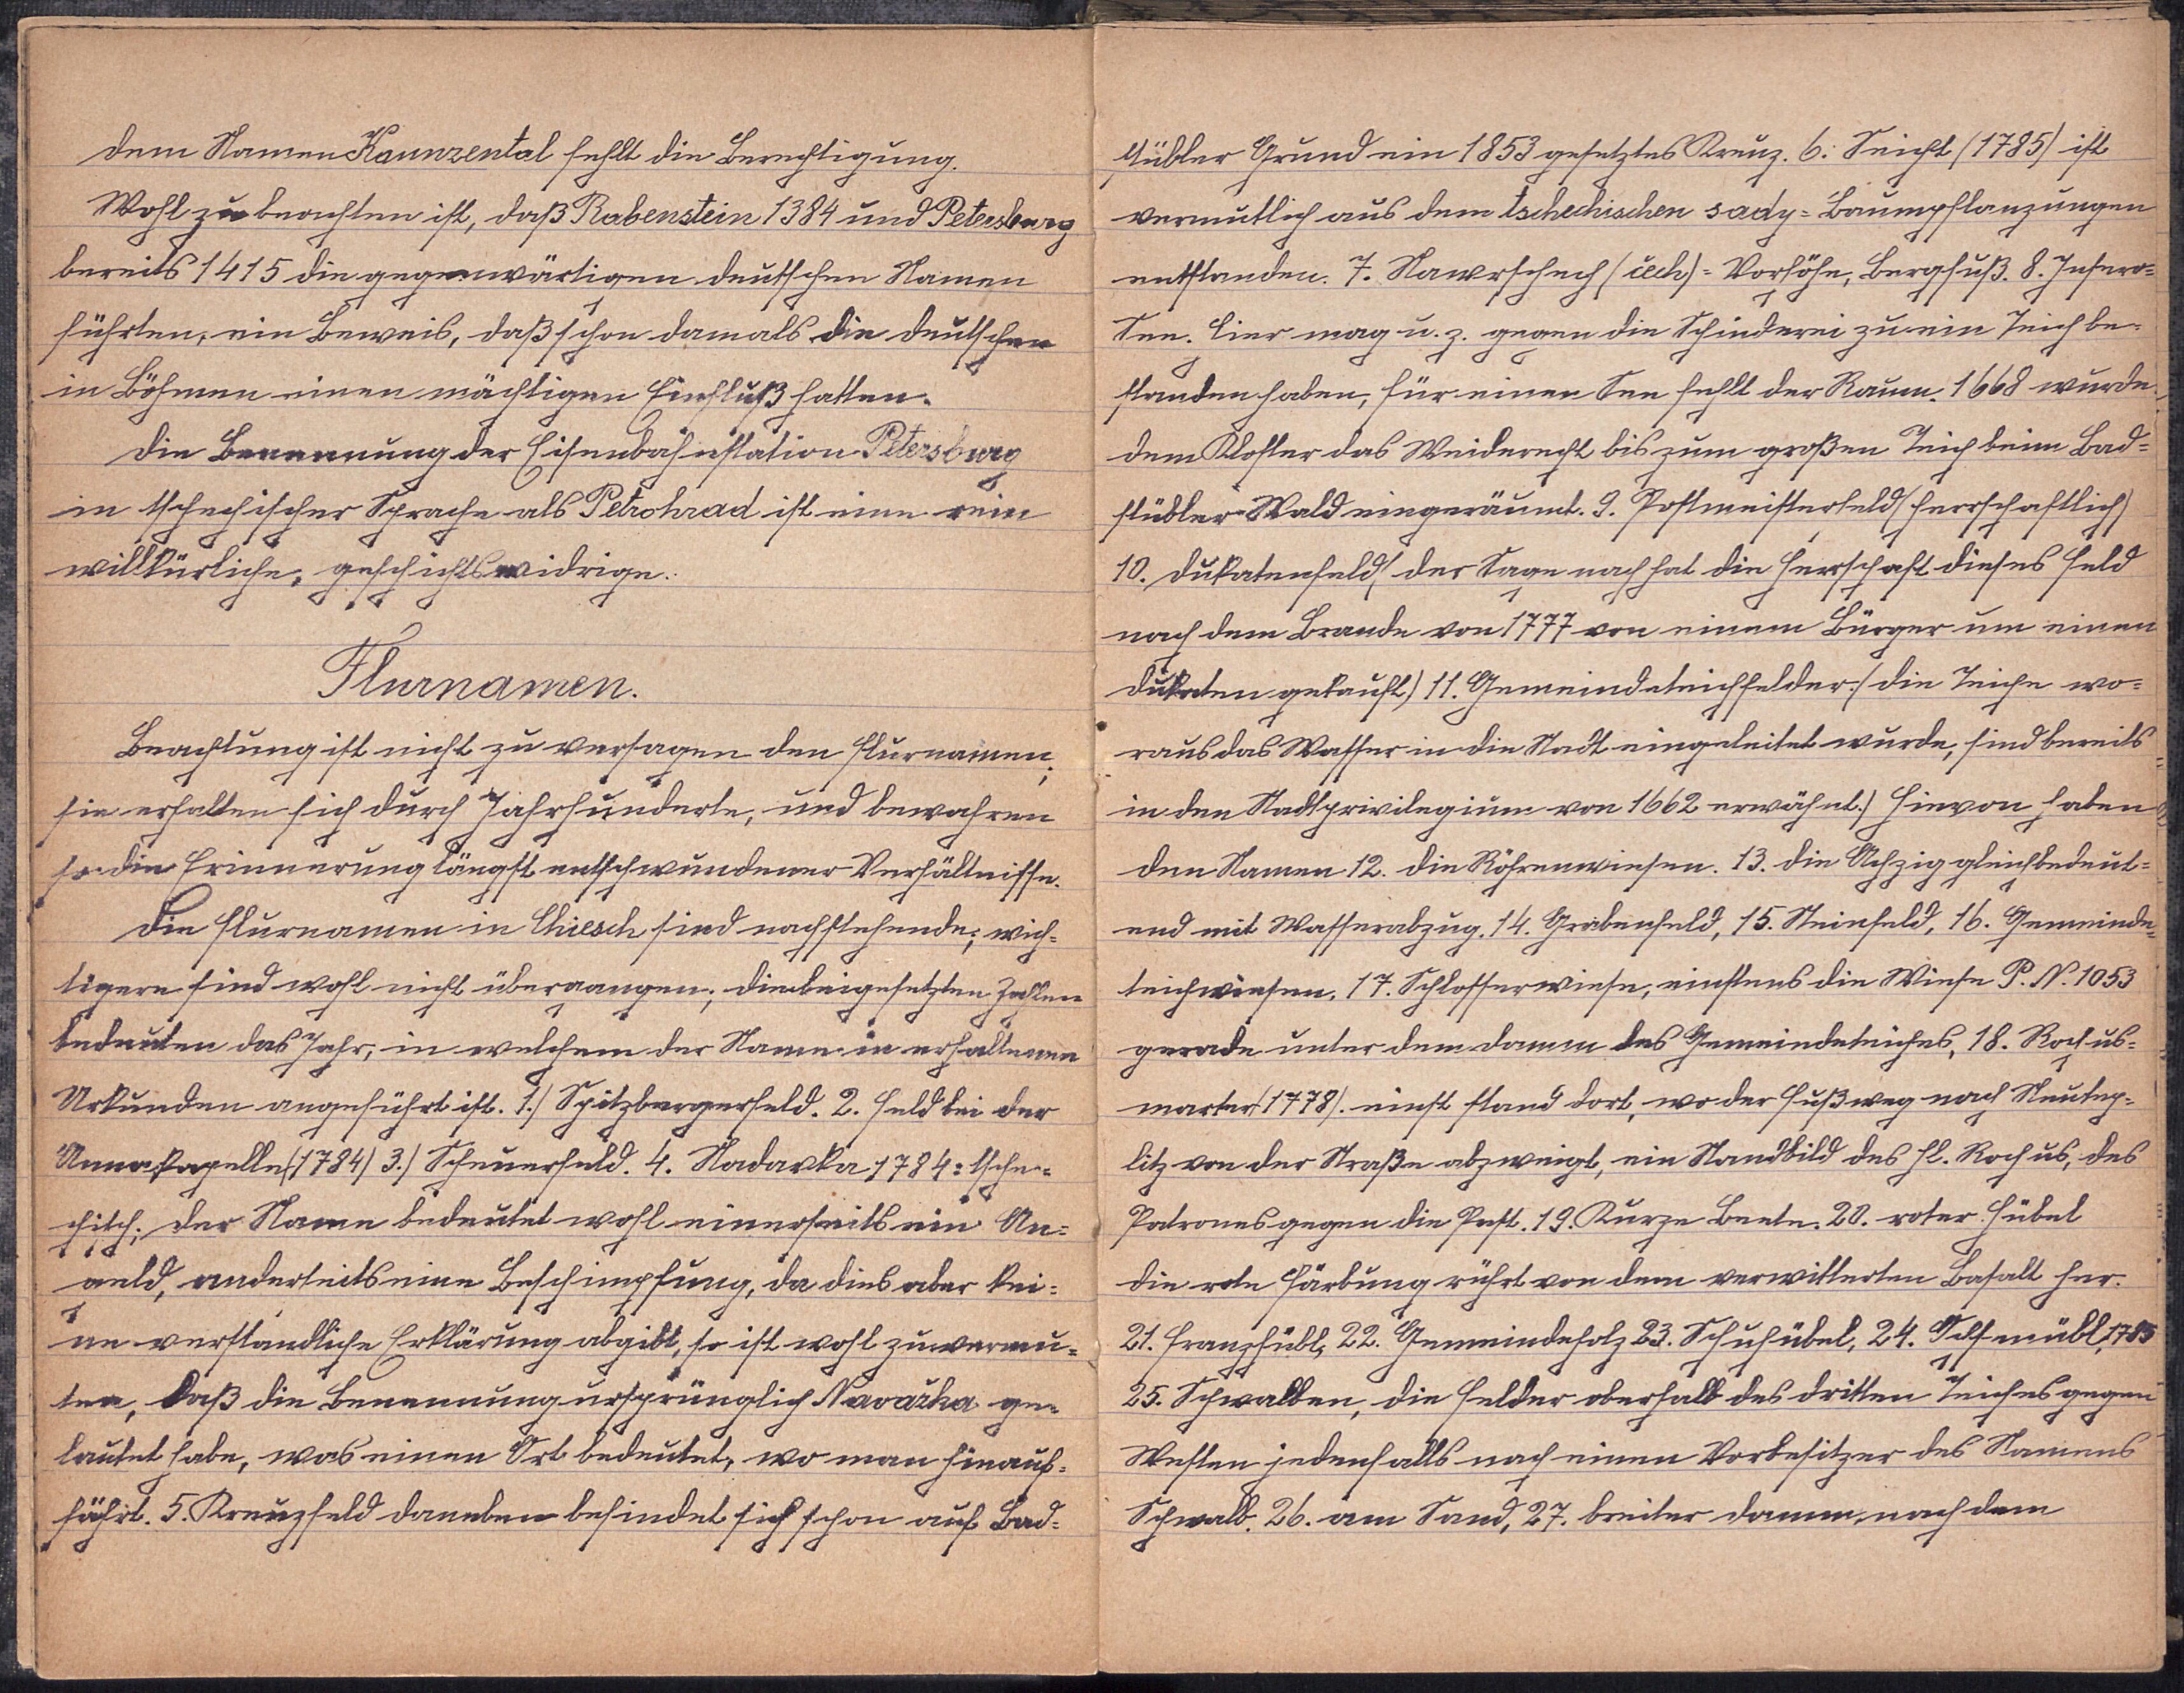 dem Namen Kaunzental fehlt die Berechtigung.
Wohl zu beachten ist, daß Rabenstein 1384 und Petersburg
bereits 1415 die gegenwärtigen deutschen Namen
führten, ein Beweis, daß schon damals die Deutschen
in Böhmen einen mächtigen Einfluß hatten.
Die Benennung der Eisenbahnstation Petersburg
in tschechischer Sprache als Petrohrad ist eine rein
willkürliche, geschichtswidrige.
Flurnamen.
Beachtung ist nicht zu versagen den Flurnamen;
sie erhalten sich durch Jahrhunderte, und bewahren
so die Erinnerung längst entschwundener Verhältnisse.
Die Flurnamen in Chiesch sind nachstehende; wich=
tigere sind wohl nicht übergangen; die beigesetzten Zahlen
bedeuten das Jahr, in welchem der Name in erhaltenen
Urkunden angeführt ist. 1.) Spitzbergerfeld. 2. Feld bei der
Annakapelle (1784) 3.) Scheuerfeld. 4. Nadavka 1784 = tsche=
chisch; der Name bedeutet wohl einerseits ein An=
geld, anderseits eine Beschimpfung, da dies aber kei=
ne verständliche Erklärung abgibt, so ist wohl zu vermu=
ten, daß die Benennung ursprünglich Navažka ge=
lautet habe, was einen Ort bedeutet, wo man hinauf=
fährt. 5. Kreuzfeld daneben befindet sich schon auf Bad=
stübler Grund ein 1853 gesetztes Kreuz. 6. Seicht (1785) ist
vermutlich aus dem tschechischen sady = Baumpflanzungen
entstanden. 7. Nawrschech (čech) = Vorhöhe, Bergfuß. 8.
See. Hier mag u. z. gegen die Schinderei zu ein Teich be=
standen haben, für einen See fehlt der Raum. 1668 wurde
dem Kloster das Weiderecht bis zum großen Teich beim Bad=
stübler Wald eingeräumt. 9. Postmeisterfeld (herrschaftlich)
10. Dukatenfeld (der Sage nach hat die Herrschaft dieses Feld
nach dem Brande von 1777 von einem Bürger um einen
Dukaten gekauft) 11. Gemeindeteichfelder (die Teiche wo=
raus das Wasser in die Stadt eingeleitet wurde, sind bereits
in den Stadtprivilegium von 1662 erwähnt.) Hievon haben
den Namen 12. die Röhrenwiesen. 13. die Achzig gleichbedeut=
end mit Wasserabzug. 14. Grabenfeld, 15. Steinfeld, 16. Gemeinde=
teichwiesen. 17. Schlosserwiese, einstens die Wiese P. N. 1053
gerade unter dem Damm des Gemeindeteiches, 18. Rochus=
marter (1778). einst stand dort, wo der Fußweg nach Neutep=
litz von der Straße abzweigt, ein Standbild des hl. Rochus, des
Patrones gegen die Pest. 19. Kurze Beete. 20. roter Hübel
die rote Färbung rührt von dem verwitterten Basalt her.
21. Franzhübl, 22. Gemeindeholz 23. Schuhübel, 24. 1785
25. Schwalben, die Felder oberhalb des dritten Teiches gegen
Westen jedenfalls nach einen Vorbesitzer des Namens
Schwalb. 26. am Sand, 27. breiter Damm, nach dem